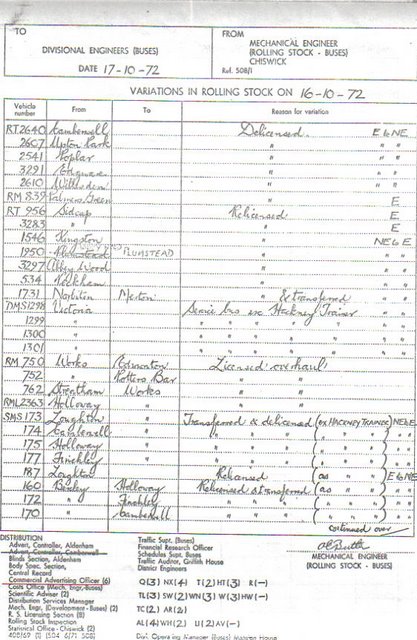 TO
DIVISIONAL ENGINEERS (BUSES)
DATE 17-10-72
FROM
MECHANICAL ENGINEER
(ROLLING STOCK - BUSES)
CHISWICK
Ref. 508/1
VARIATIONS IN ROLLING STOCK ON 16-10-72
Vehicle number From To Reason for variation
RT2640 Camberwell Delicensed. E to NE
2607 Upton Park " " "
2541 Poplar " " "
3291 Edgware " " "
2610 Willesden " " "
RM 839 Palmers Green " E
RT 956 Sidcup Relicensed E
3283 " " E
1546 Kingston " NE to E
1950 Plumstead PLUMSTEAD " " "
3297 Abbey Wood " " "
534 Peckham " " "
1731 Norbiton Merton " & transferred " "
DMS1298 Victoria Service bus ex Hackney Trainer
1299 " " " " " "
1300 " " " " " "
1301 " " " " " "
RM 750 Works Edmonton Licensed overhaul
752 " Potters Bar " "
762 Streatham Works " "
RML2363 Holloway " " "
SMS173 Loughton " Transferred & delicensed (ex HACKNEY TRAINEE) NE to E
174 Camberwell " " " "
175 Holloway " " " "
177 Finchley " " " "
187 London Relicensed (as " " ) E to NE
160 Bexley Holloway Relicensed & transferred (as " " ) " "
172 " Finchley " " "
170 " Camberwell " " "
continued over
DISTRIBUTION
Advert. Controller, Aldenham
Advert. Controller, Camberwell
Blinds Section, Aldenham
Body Spec. Section,
Central Record
Commercial Advertising Officer (6)
Costs Office (Mech. Engr.-Buses)
Scientific Adviser (2)
Distribution Services Manager
Mech. Engr. (Development - Buses) (2)
R. S. Licensing Section (8)
Rolling Stock Inspection
Statistical Office - Chiswick (2)
Traffic Supt. (Buses)
Financial Research Officer
Schedules Supt. Buses
Traffic Auditor, Griffith House
Training Centre
MECHANICAL ENGINEER
(ROLLING STOCK - BUSES)
Q(3) NX(4) T(2) HT(3) R(-)
TL(3) SW(2) WN(3) W(3) HW(-)
TC(2) AR(2)
AL(4) WH(2) U(2) AV(-)
Div. Operating Manager (Buses) Manor House